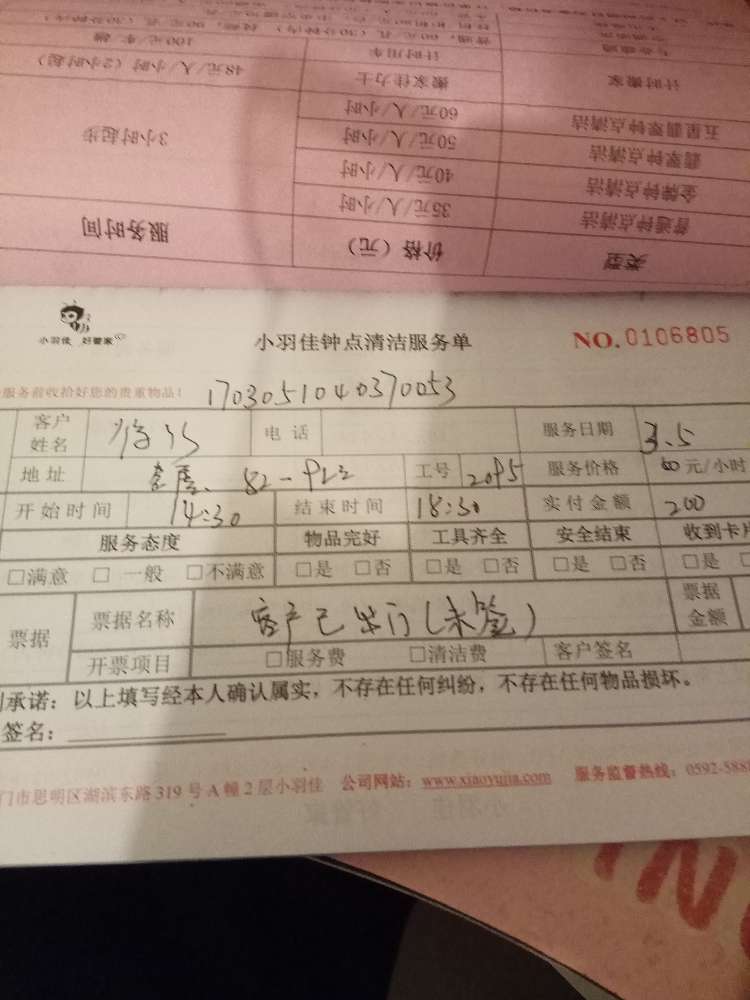 类型 价格（元） 服务时间
普通钟点清洁 35元/人/小时 3小时起步
金牌钟点清洁 40元/人/小时
翡翠钟点清洁 50元/人/小时
五星翡翠钟点清洁 60元/人/小时
计时搬家 搬家佳力士 48元/人/小时（2小时起）
计时用车 100元/车/趟
小羽佳 好管家
小羽佳钟点清洁服务单 NO.0106805
服务前收拾好您的贵重物品！ 1703051040370053
客户姓名 电话 服务日期 3.5
地址 82- 工号 2095 服务价格 元/小时
开始时间 14:30 结束时间 18:30 实付金额 200
服务态度 物品完好 工具齐全 安全结束 收到卡片
□满意 □一般 □不满意 □是 □否 □是 □否 □是 □否 □是
票据 票据名称 客户已出门(未签) 票据金额
开票项目 □服务费 □清洁费 客户签名
承诺：以上填写经本人确认属实，不存在任何纠纷，不存在任何物品损坏。
签名：
门市思明区湖滨东路319号A幢2层小羽佳 公司网站：www.xiaoyujia.com 服务监督热线：0592-588